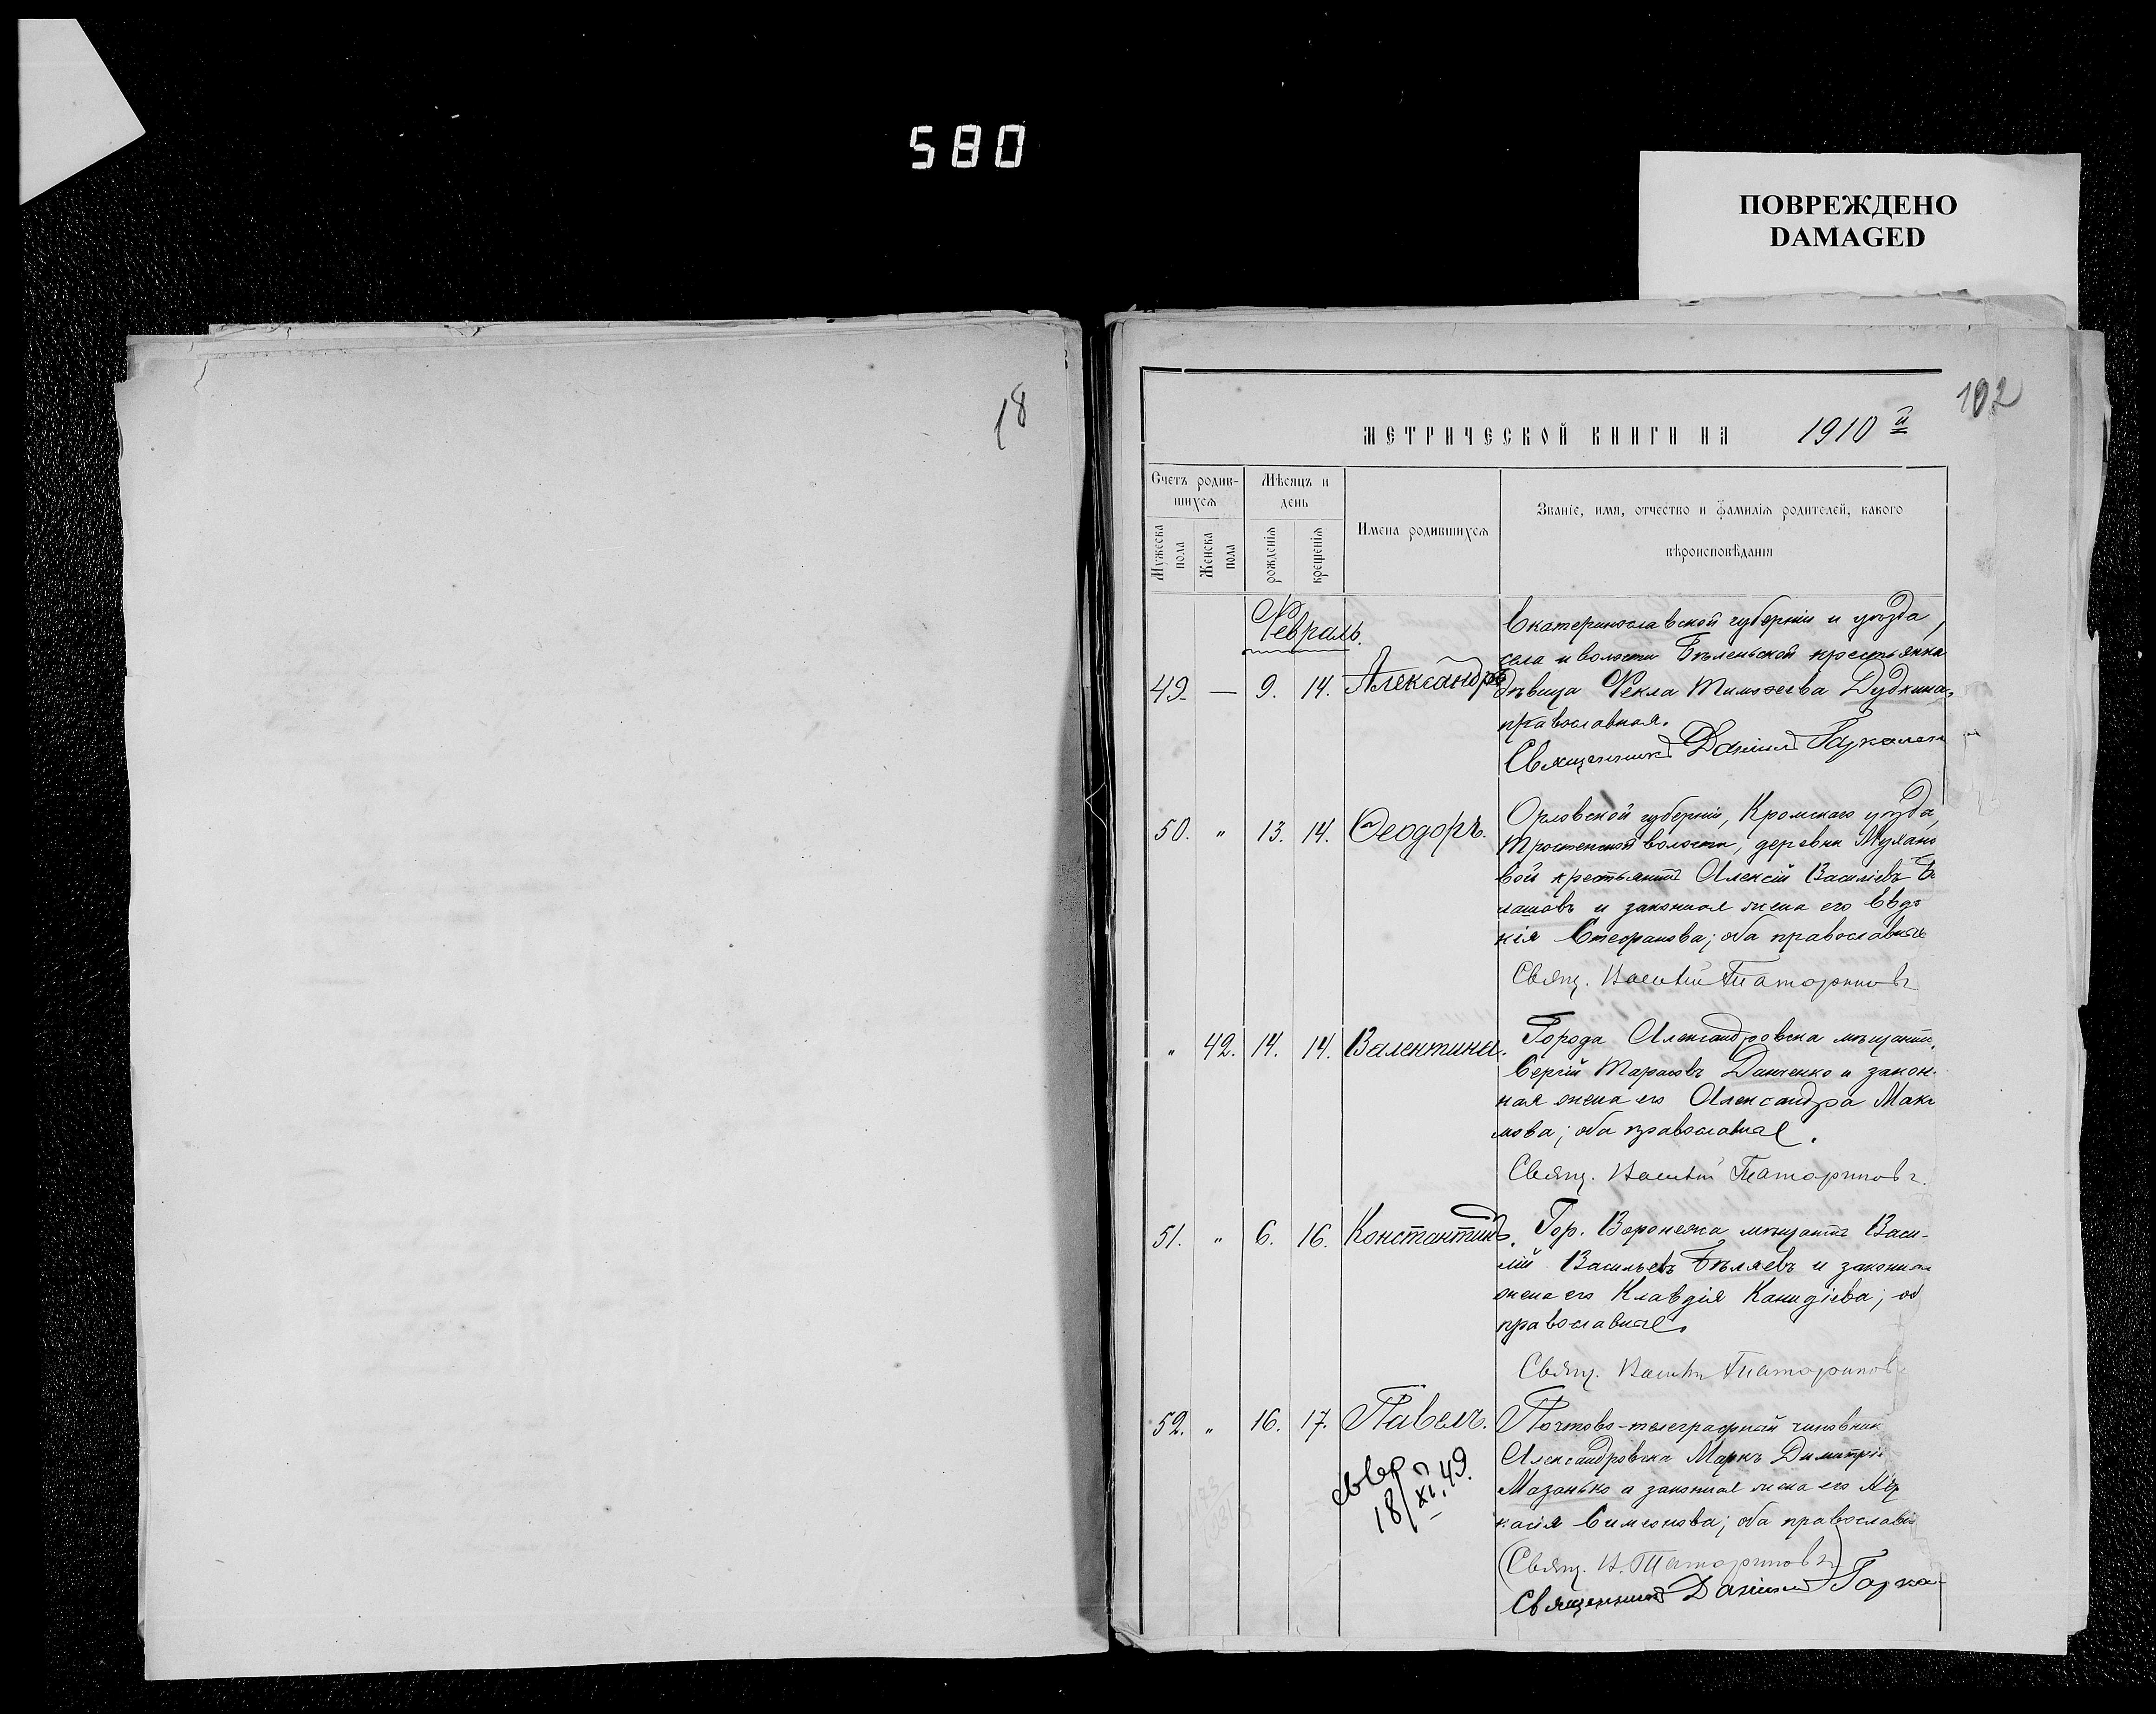 580
ПОВРЕЖДЕНО
DAMAGED
18
102
МЕТРИЧЕСКОЙ КНИГИ НА 1910 й
Счетъ родив-
шихся
Мѣсяцъ и
день
Имена родившихся
Званіе, имя, отчество и фамилія родителей, какого
вѣроисповѣданія
Мужеска
пола
Женска
пола
рожденія
крещенія
Февраль.
Екатеринославской губерніи и уѣзда,
села и волости Бѣленьской крестьянка
49. — 9. 14. Александръ дѣвица Фекла Тимоѳеева Дудкина,
православная.
Священникъ Даніилъ
50. " 13. 14. Ѳеодоръ. Орловской губерніи, Кромскаго уѣзда,
Тростенской волости, деревни Мухано
вой крестьянинъ Алексій Василіевъ
и законная жена его Евдо
кія Стефанова; оба православные
Свящ. Василій Таториновъ
" 42. 14. 14. Валентина. Города Александровска мѣщанинъ
Сергій Тарасовъ Данченко и закон-
ная жена его Александра Макси
мова; оба православные.
Свящ. Василій Таториновъ.
51. " 6. 16. Константинъ. Гор. Воронежа мѣщанинъ Васи-
лій Васильевъ Бѣляевъ и законная
жена его Клавдія Канидіева; об
православные.
Свящ. Василій Таториновъ
52. " 16. 17. Павелъ. Почтово-телеграфный чиновник
Александровска Маркъ Димитріе
Мазанько и законная жена его
касія Симеонова; оба православн
18/XI.49.
(Свящ. В. Таториновъ)
Священникъ Даніилъ